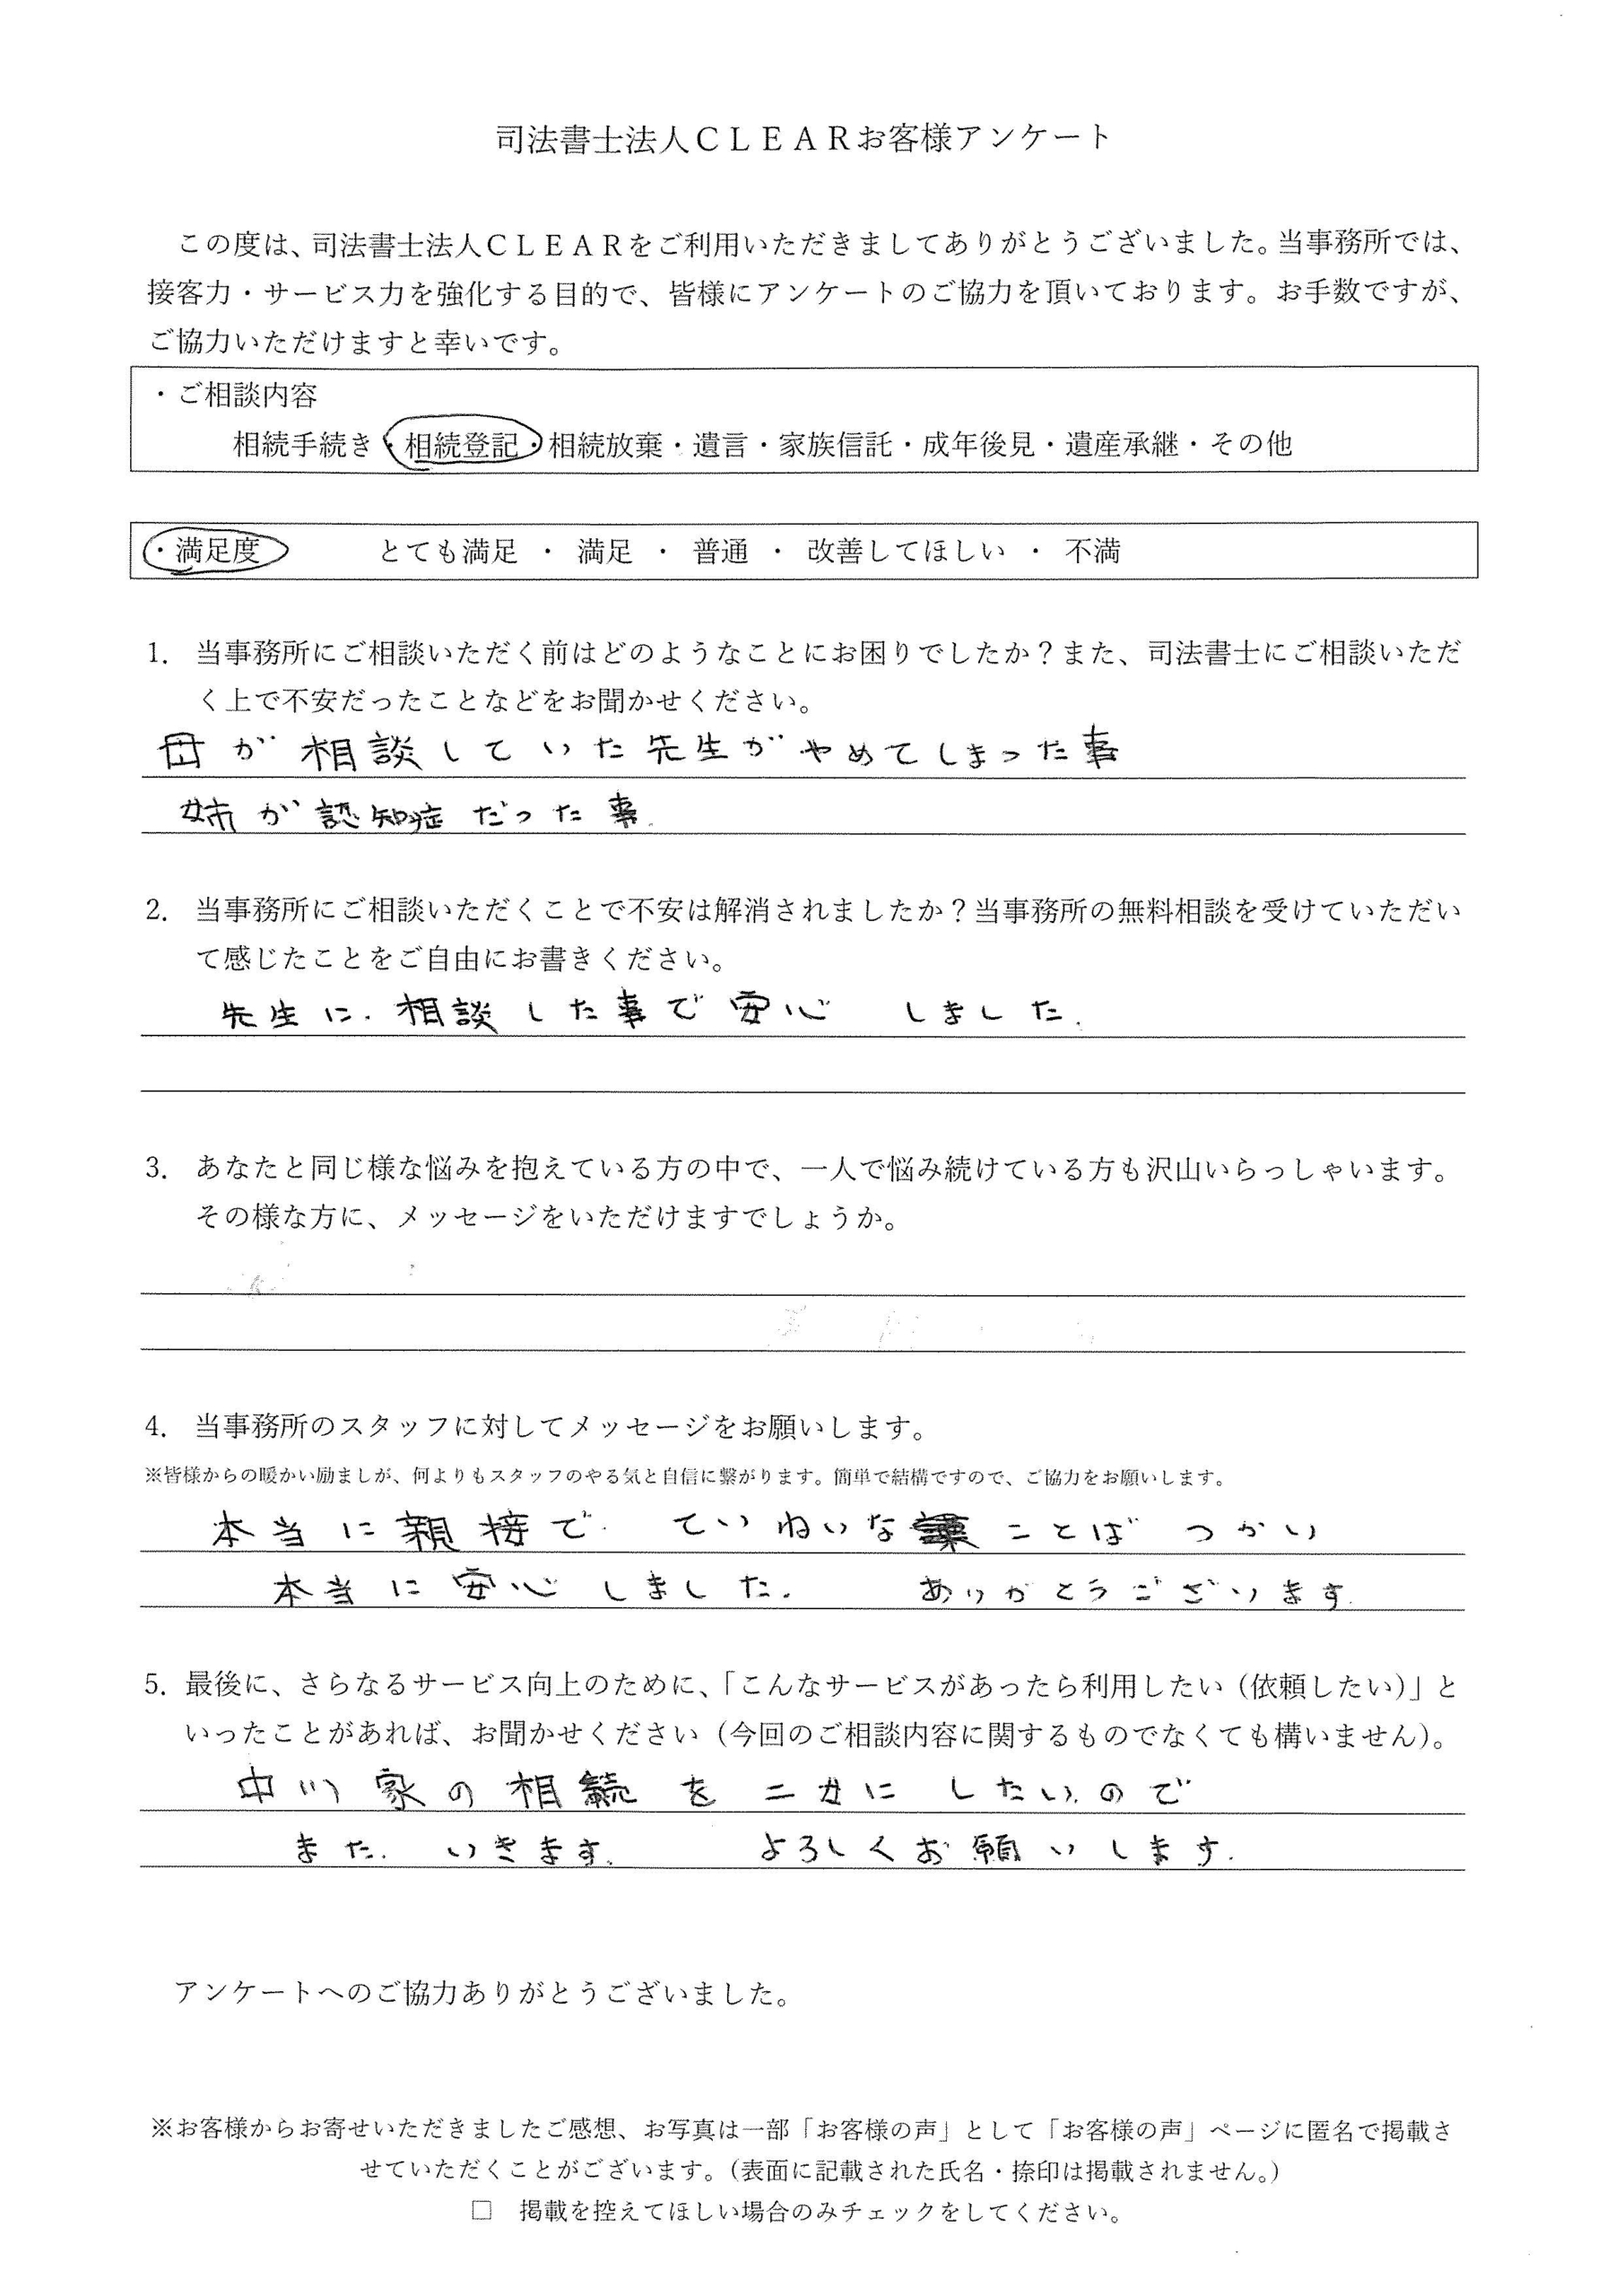 司法書士法人ＣＬＥＡＲお客様アンケート
この度は、司法書士法人ＣＬＥＡＲをご利用いただきましてありがとうございました。当事務所では、
接客力・サービス力を強化する目的で、皆様にアンケートのご協力を頂いております。お手数ですが、
ご協力いただけますと幸いです。
・ご相談内容
相続手続き・相続登記・相続放棄・遺言・家族信託・成年後見・遺産承継・その他
・満足度　とても満足 ・ 満足 ・ 普通 ・ 改善してほしい ・ 不満
1. 当事務所にご相談いただく前はどのようなことにお困りでしたか？また、司法書士にご相談いただ
く上で不安だったことなどをお聞かせください。
母が相談していた先生がやめてしまった事
姉が認知症だった事.
2. 当事務所にご相談いただくことで不安は解消されましたか？当事務所の無料相談を受けていただい
て感じたことをご自由にお書きください。
先生に.相談した事で安心 しました.
3. あなたと同じ様な悩みを抱えている方の中で、一人で悩み続けている方も沢山いらっしゃいます。
その様な方に、メッセージをいただけますでしょうか。
4. 当事務所のスタッフに対してメッセージをお願いします。
※皆様からの暖かい励ましが、何よりもスタッフのやる気と自信に繋がります。簡単で結構ですので、ご協力をお願いします。
本当に親接で. ていねいな ことば つかい
本当に安心しました. ありがとうございます.
5. 最後に、さらなるサービス向上のために、「こんなサービスがあったら利用したい（依頼したい）」と
いったことがあれば、お聞かせください（今回のご相談内容に関するものでなくても構いません）。
中川家の相続を したいので
また. いきます. よろしくお願いします.
アンケートへのご協力ありがとうございました。
※お客様からお寄せいただきましたご感想、お写真は一部「お客様の声」として「お客様の声」ページに匿名で掲載さ
せていただくことがございます。（表面に記載された氏名・捺印は掲載されません。）
□ 掲載を控えてほしい場合のみチェックをしてください。